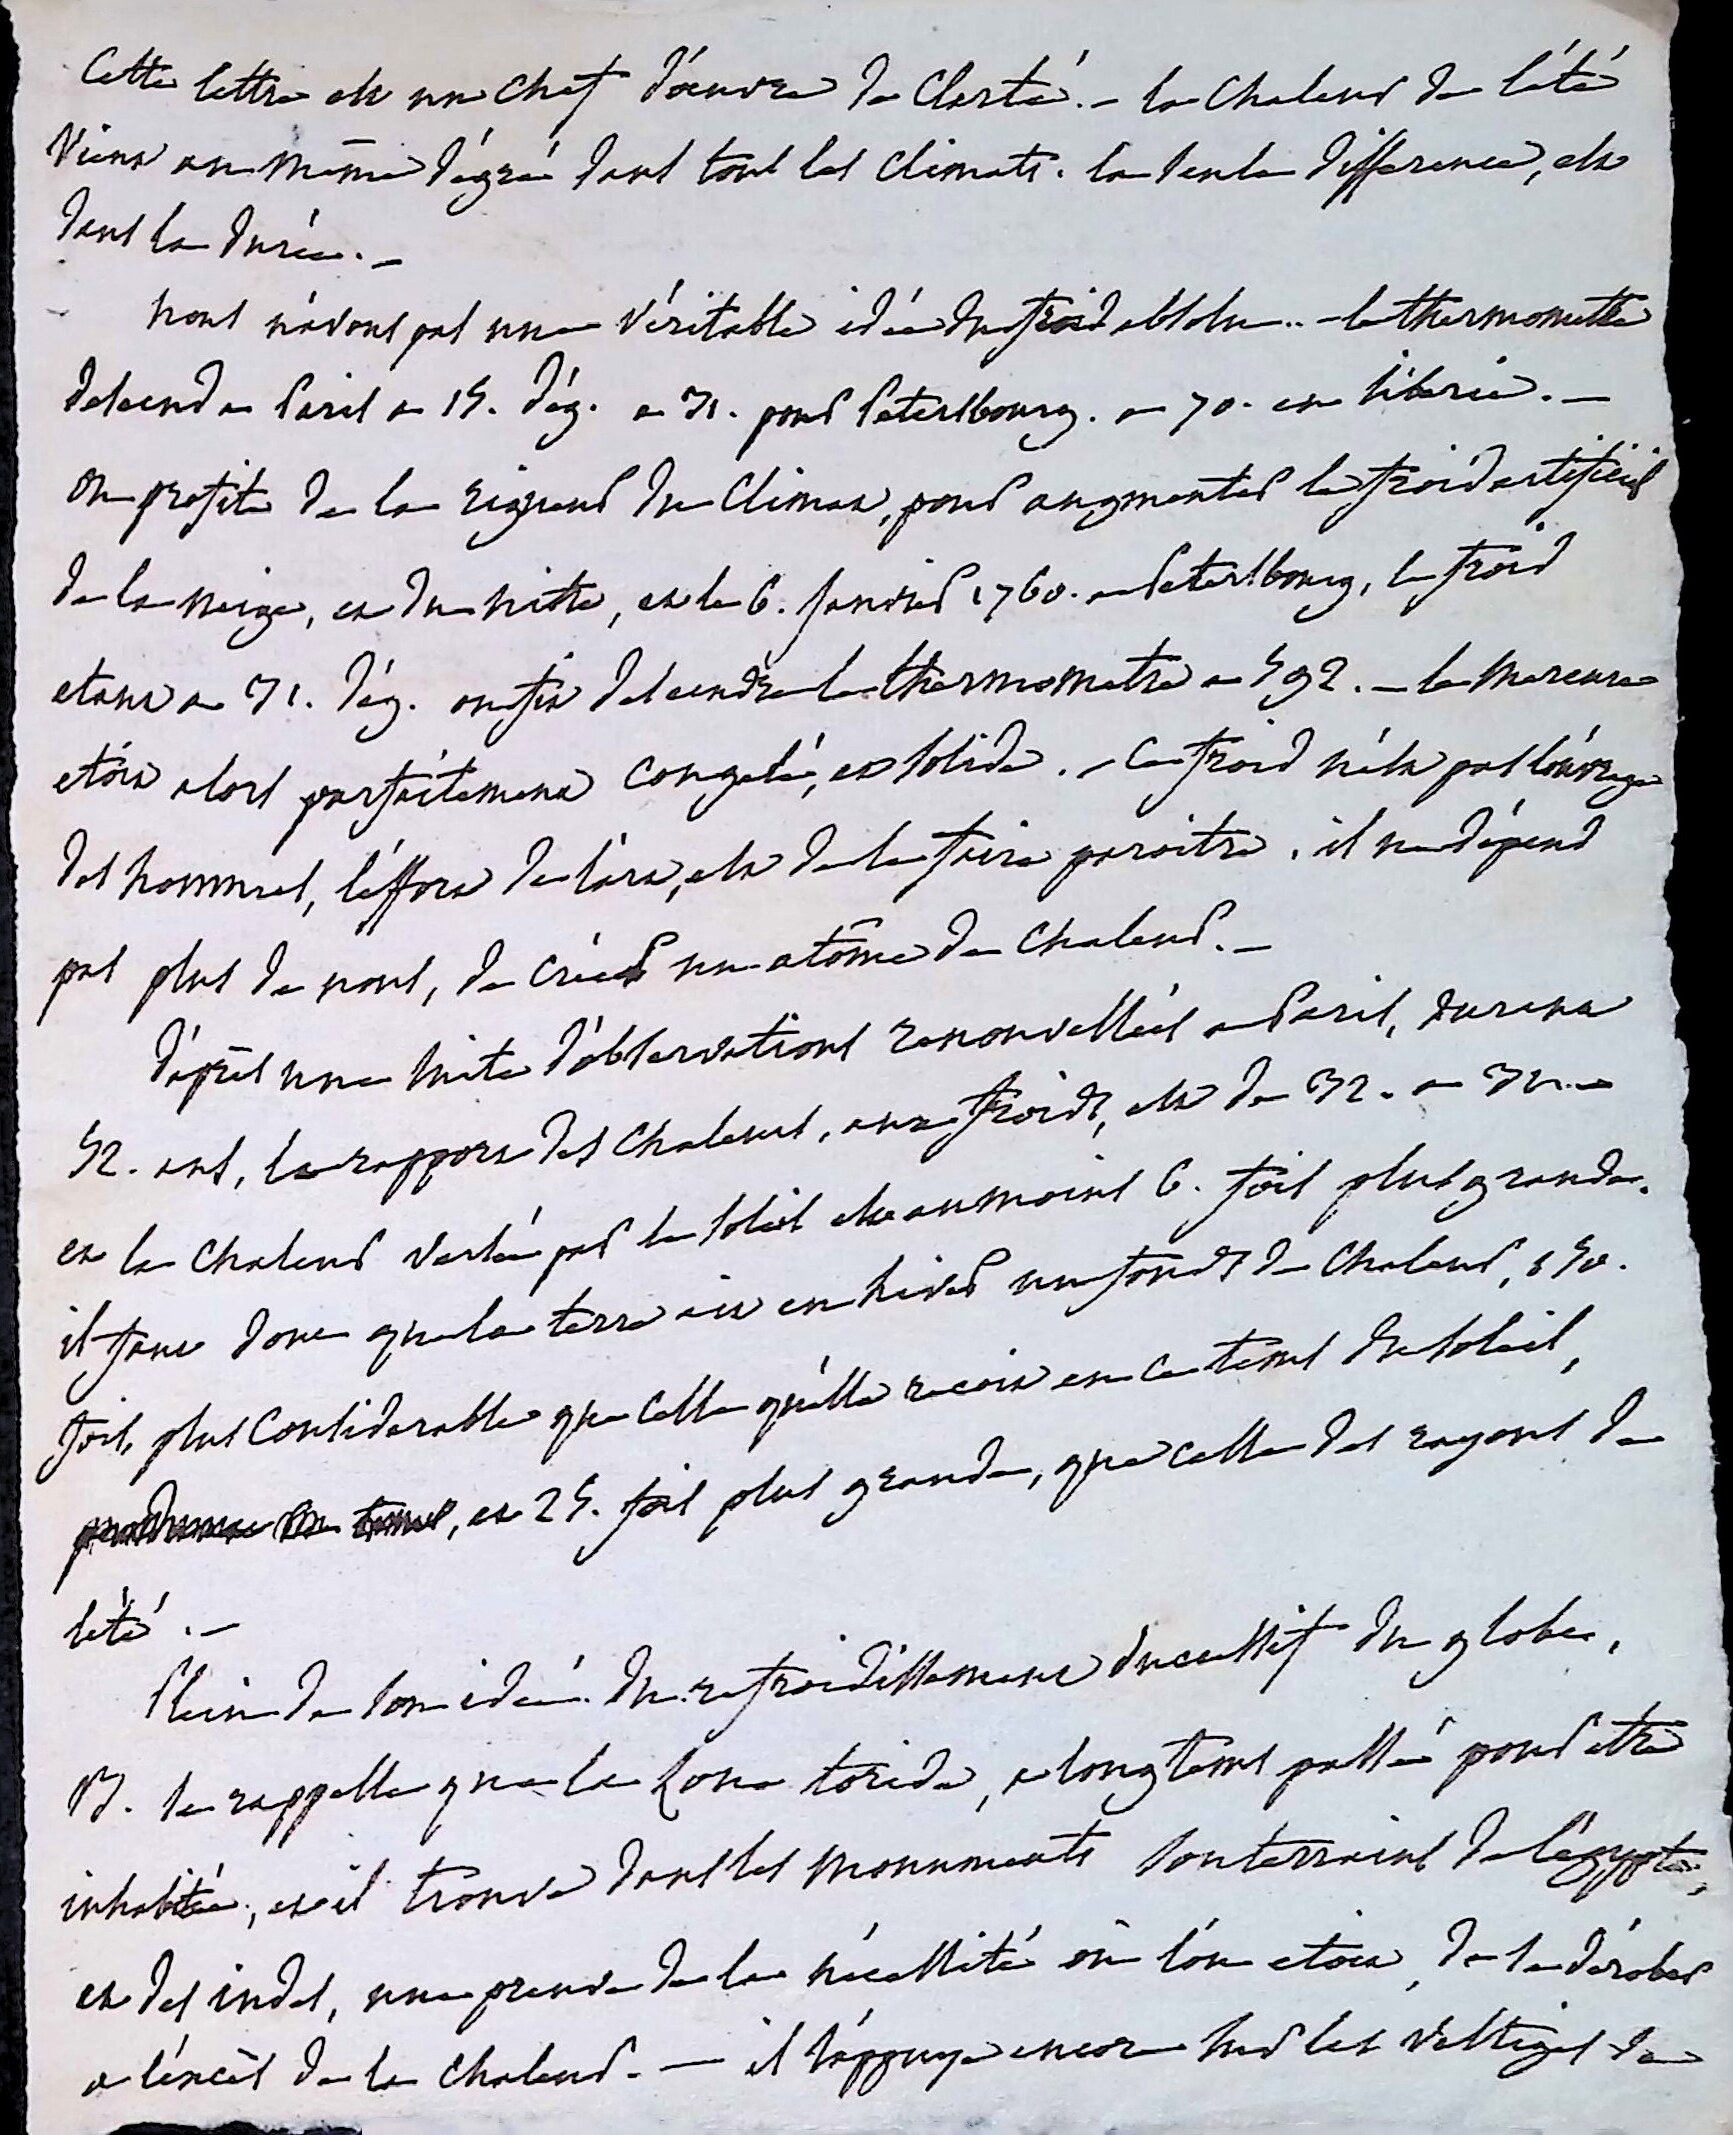 Cette lettre est un chef d'oeuvre de Clarté. – la Chaleur de l'été
Vient au même dégré dans tous les Climats. la seule difference, est
dans la durée. –
nous n'avons pas une véritable idée du froid absolu.. – le thermometre
descend a Paris a 15. dég. a 31. pour Petersbourg. a 70. en Siberie. –
on profite de la rigueur du Climat, pour augmenter le froid artificiel
de la neige, et du nitre, et le 6. Janvier 1760. a Petersbourg, le froid
etant a 31. dég. on fit descendre le thermometre a 592. – le mercure
etoit alors parfaitement congelé, et solide. – Ce froid n'est pas l'ouvrage
des hommes, l'effort de l'art, est de le faire paroitre. il ne dépend
pas plus de nous, de créer un atôme de Chaleur. –
d'après une suite d'observations renouvellées a Paris, durant
52. ans, le rapport des Chaleurs, aux froids, est de 32. a 31. –
et la Chaleur versée par le soleil est au moins 6. fois plus grande.
il faut donc que la terre ait en hiver un fonds de Chaleur, 150.
fois, plus Considerable que celle qu'elle recoit en ce tems du soleil,
et 25. fois plus grande, que celle des rayons de
l'été. –
Plein de son idée du refroidissement successif du globe,
B. se rappelle que la Zone toride, a longtems passé pour etre
inhabitée, et il trouve dans les monuments souterrains de l'égypte,
et des indes, une preuve de la nécessité où l'on etoit, de se dérober
a l'éxcès de la Chaleur. — il s'appuye encore sur les vestiges de